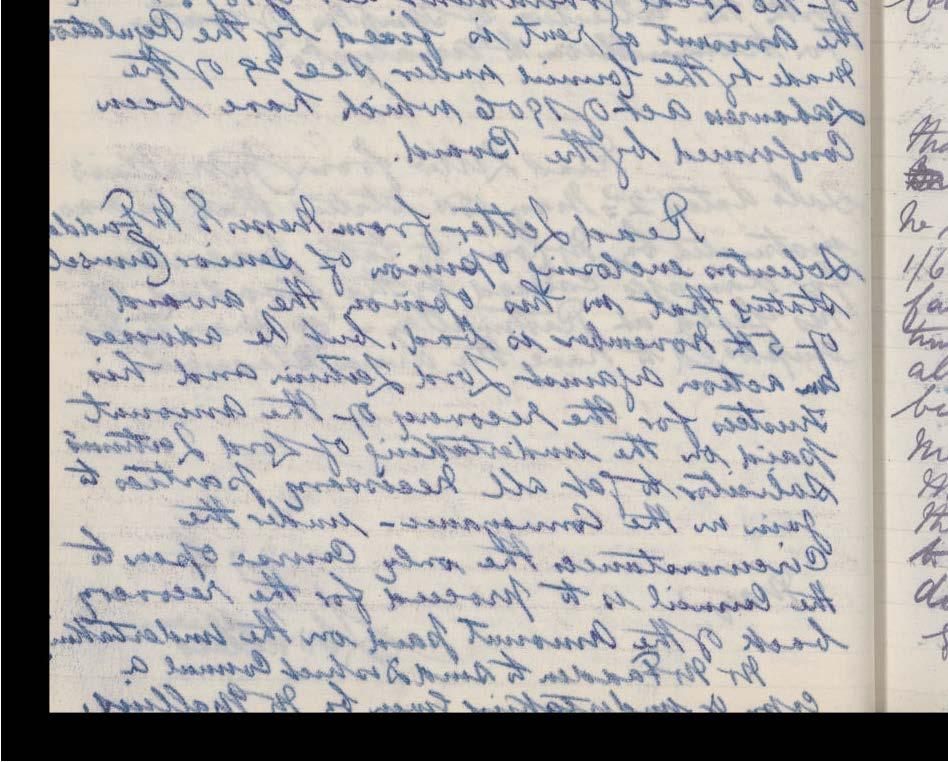 of the Local Government
the amount of rent is fixed by the Regulation
made by the Council under Sec 29 of the
Labourers act of 1906 which have been
Confirmed by the Board.
Read Letter from Messrs
Solicitors enclosing opinion of Senior Counsel
stating that in his opinion the award
of 5th November is bad. but he advises
an action against Lord Leitrim and his
trustees for the recovery of the amount
paid on the undertaking of Lord Leitrim's
Solicitor to get all necessary parties to
join in the Conveyance - under the
Circumstances the only Course open to
the Council is to proceed for the recovery
back of the Amount paid on the undertaking
Mr McFadden to send District Council a
copy of undertaking Given by
he
1/6